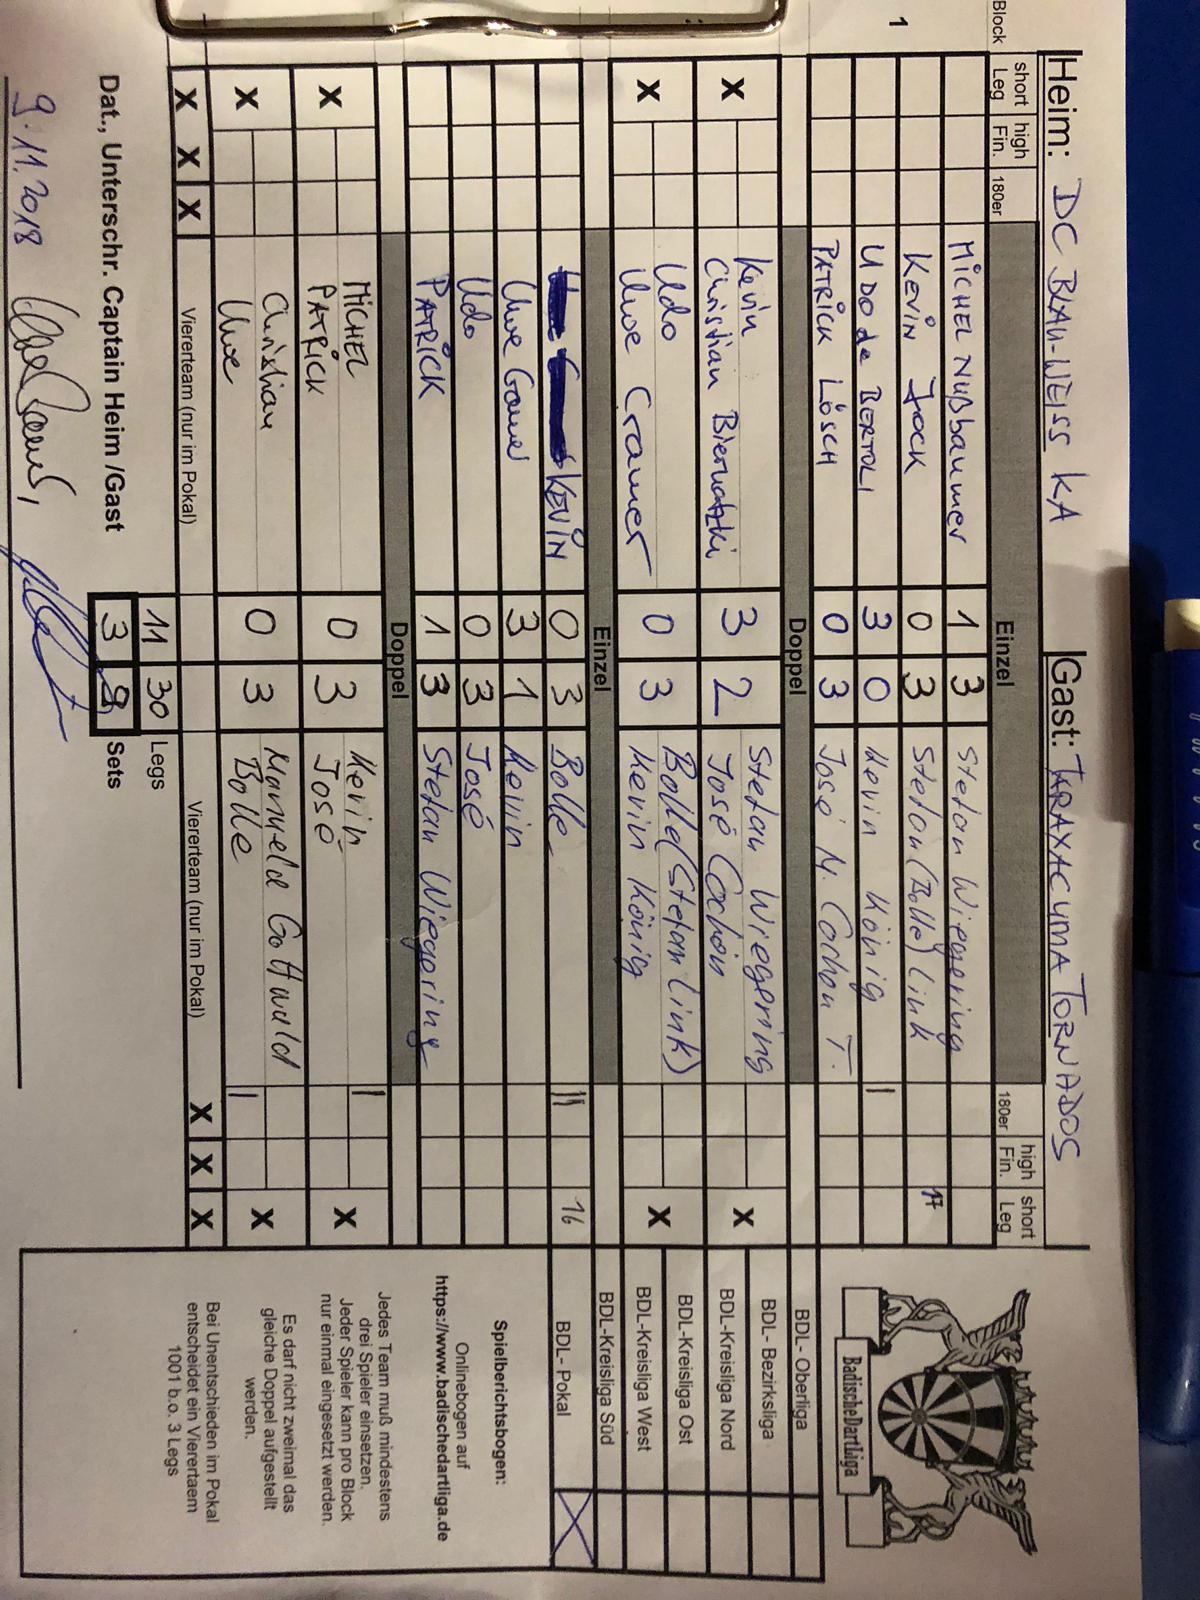 Heim: DC BLAU-WEISS KA Gast: TARAXACUMA TORNADOS
Block short Leg high Fin. 180er Einzel 180er high Fin. short Leg
1
MICHEL NUßbaumer 1 3 Stefan Wiegering
KEVIN JOCK 0 3 Stefan (Bolle) Link 17
UDO de BERTOLI 3 0 Kevin König |
PATRICK LÖSCH 0 3 José M. Cochon T.
Doppel
Kevin Stefan Wiegering
X Christian Biernatzki 3 2 José Cochon X
Udo Bolle (Stefan Link)
X Uwe Cramer 0 3 Kevin König X
Einzel
KEVIN 0 3 Bolle || 16
Uwe 3 1 Kevin
Udo 0 3 José
PATRICK 1 3 Stefan Wiegering
Doppel
MICHEL Kevin |
X PATRICK 0 3 José X
Christian Manuela Gottwald
X Uwe 0 3 Bolle | X
X X X Viererteam (nur im Pokal) Viererteam (nur im Pokal) X X X
11 30 Legs
Dat., Unterschr. Captain Heim /Gast 3 8 Sets
9.11.2018
BadischeDartLiga
BDL- Oberliga
BDL- Bezirksliga
BDL-Kreisliga Nord
BDL-Kreisliga Ost
BDL-Kreisliga West
BDL-Kreisliga Süd
BDL- Pokal X
Spielberichtsbogen:
Onlinebogen auf
https://www.badischedartliga.de
Jedes Team muß mindestens
drei Spieler einsetzen.
Jeder Spieler kann pro Block
nur einmal eingesetzt werden.
Es darf nicht zweimal das
gleiche Doppel aufgestellt
werden.
Bei Unentschieden im Pokal
entscheidet ein Vierertaem
1001 b.o. 3 Legs